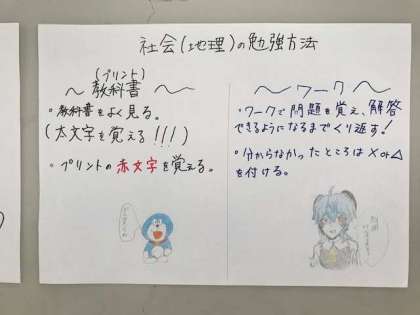 社会(地理)の勉強方法
(プリント)
〜 教科書 〜
・教科書をよく見る。
(太文字を覚える!!!)
・プリントの赤文字を覚える。
〜 ワーク 〜
・ワークで問題を覚え、解答
できるようになるまでくり返す!
・分からなかったところは×or△
を付ける。